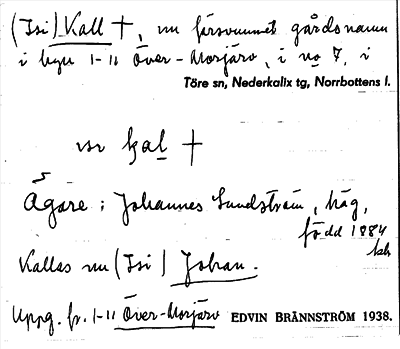 (Isi) Kall †, nu försvunnet gårdsnamn
i byn 1-11 Över-Morjärv, i no 7, i
Töre sn, Nederkalix tg, Norrbottens l.
kal †
Ägare: Johannes Sundström, häg,
född 1884
Kallas nu (Isi) Johan.
Uppg. fr. 1-11 Över-Morjärv EDVIN BRÄNNSTRÖM 1938.